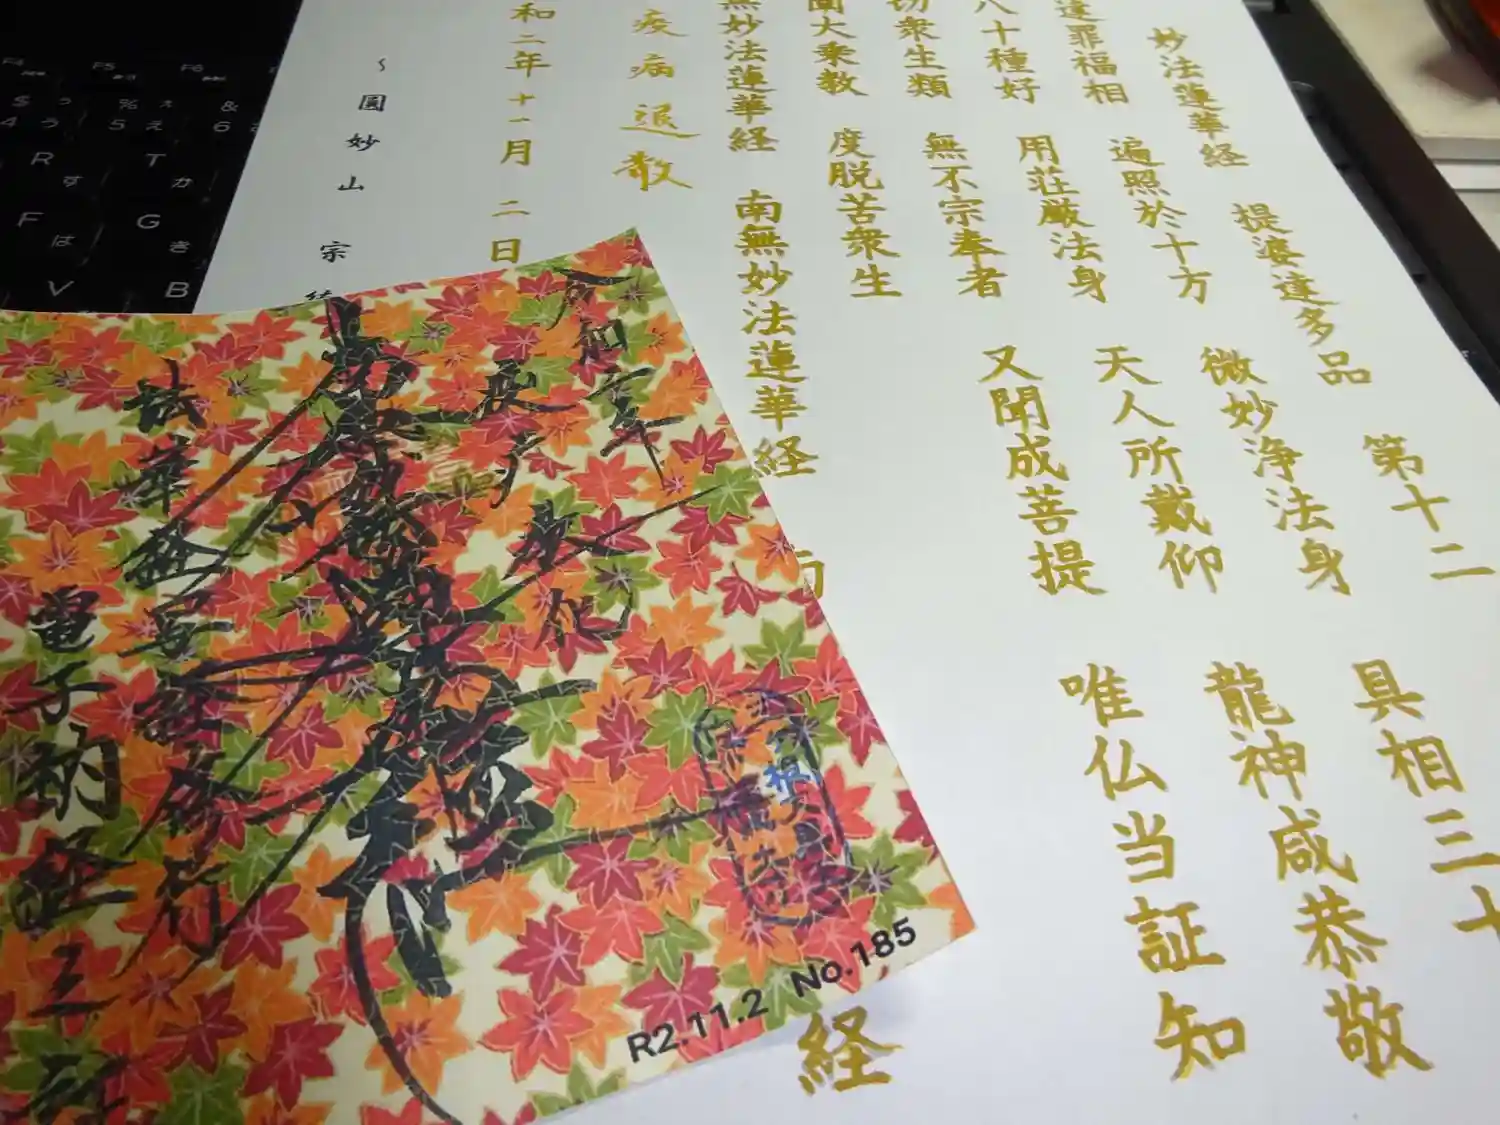 妙法蓮華経 提婆達多品 第十二
達罪福相 遍照於十方 微妙浄法身 具相三十
八十種好 用荘厳法身 天人所戴仰 龍神咸恭敬
切衆生類 無不宗奉者 又聞成菩提 唯仏当証知
闡大乗教 度脱苦衆生
無妙法蓮華経 南無妙法蓮華経 南 経
疫病退散
和二年十一月二日
~圓妙山 宗
奉
法華経写経修行
電子納経三
R2.11.2 No.185
F4
F5
F6
$ う
4 う
% ぇ
5 え
&
6
R す
T か
F は
G き
V
B